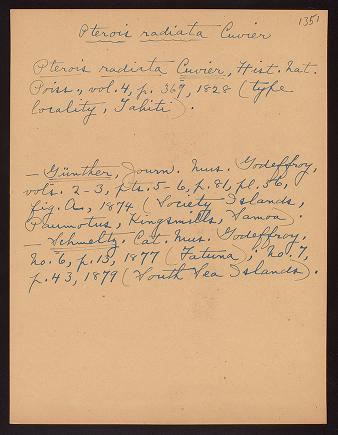 1351
Pterois radiata Cuvier
Pterois radiata Cuvier, Hist. Nat.
Poiss., vol. 4, p. 369, 1828 (type
locality, Tahiti).
— Günther, Journ. Mus. Godeffroy,
vols. 2-3, pts. 5-6, p. 81, pl. 56,
fig. A, 1874 (Society Islands,
Paumotus, Kingsmills, Samoa).
— Schmeltz, Cat. Mus. Godeffroy,
no. 6, p. 13, 1877 (Futuna); no. 7,
p. 43, 1879 (South Sea Islands).